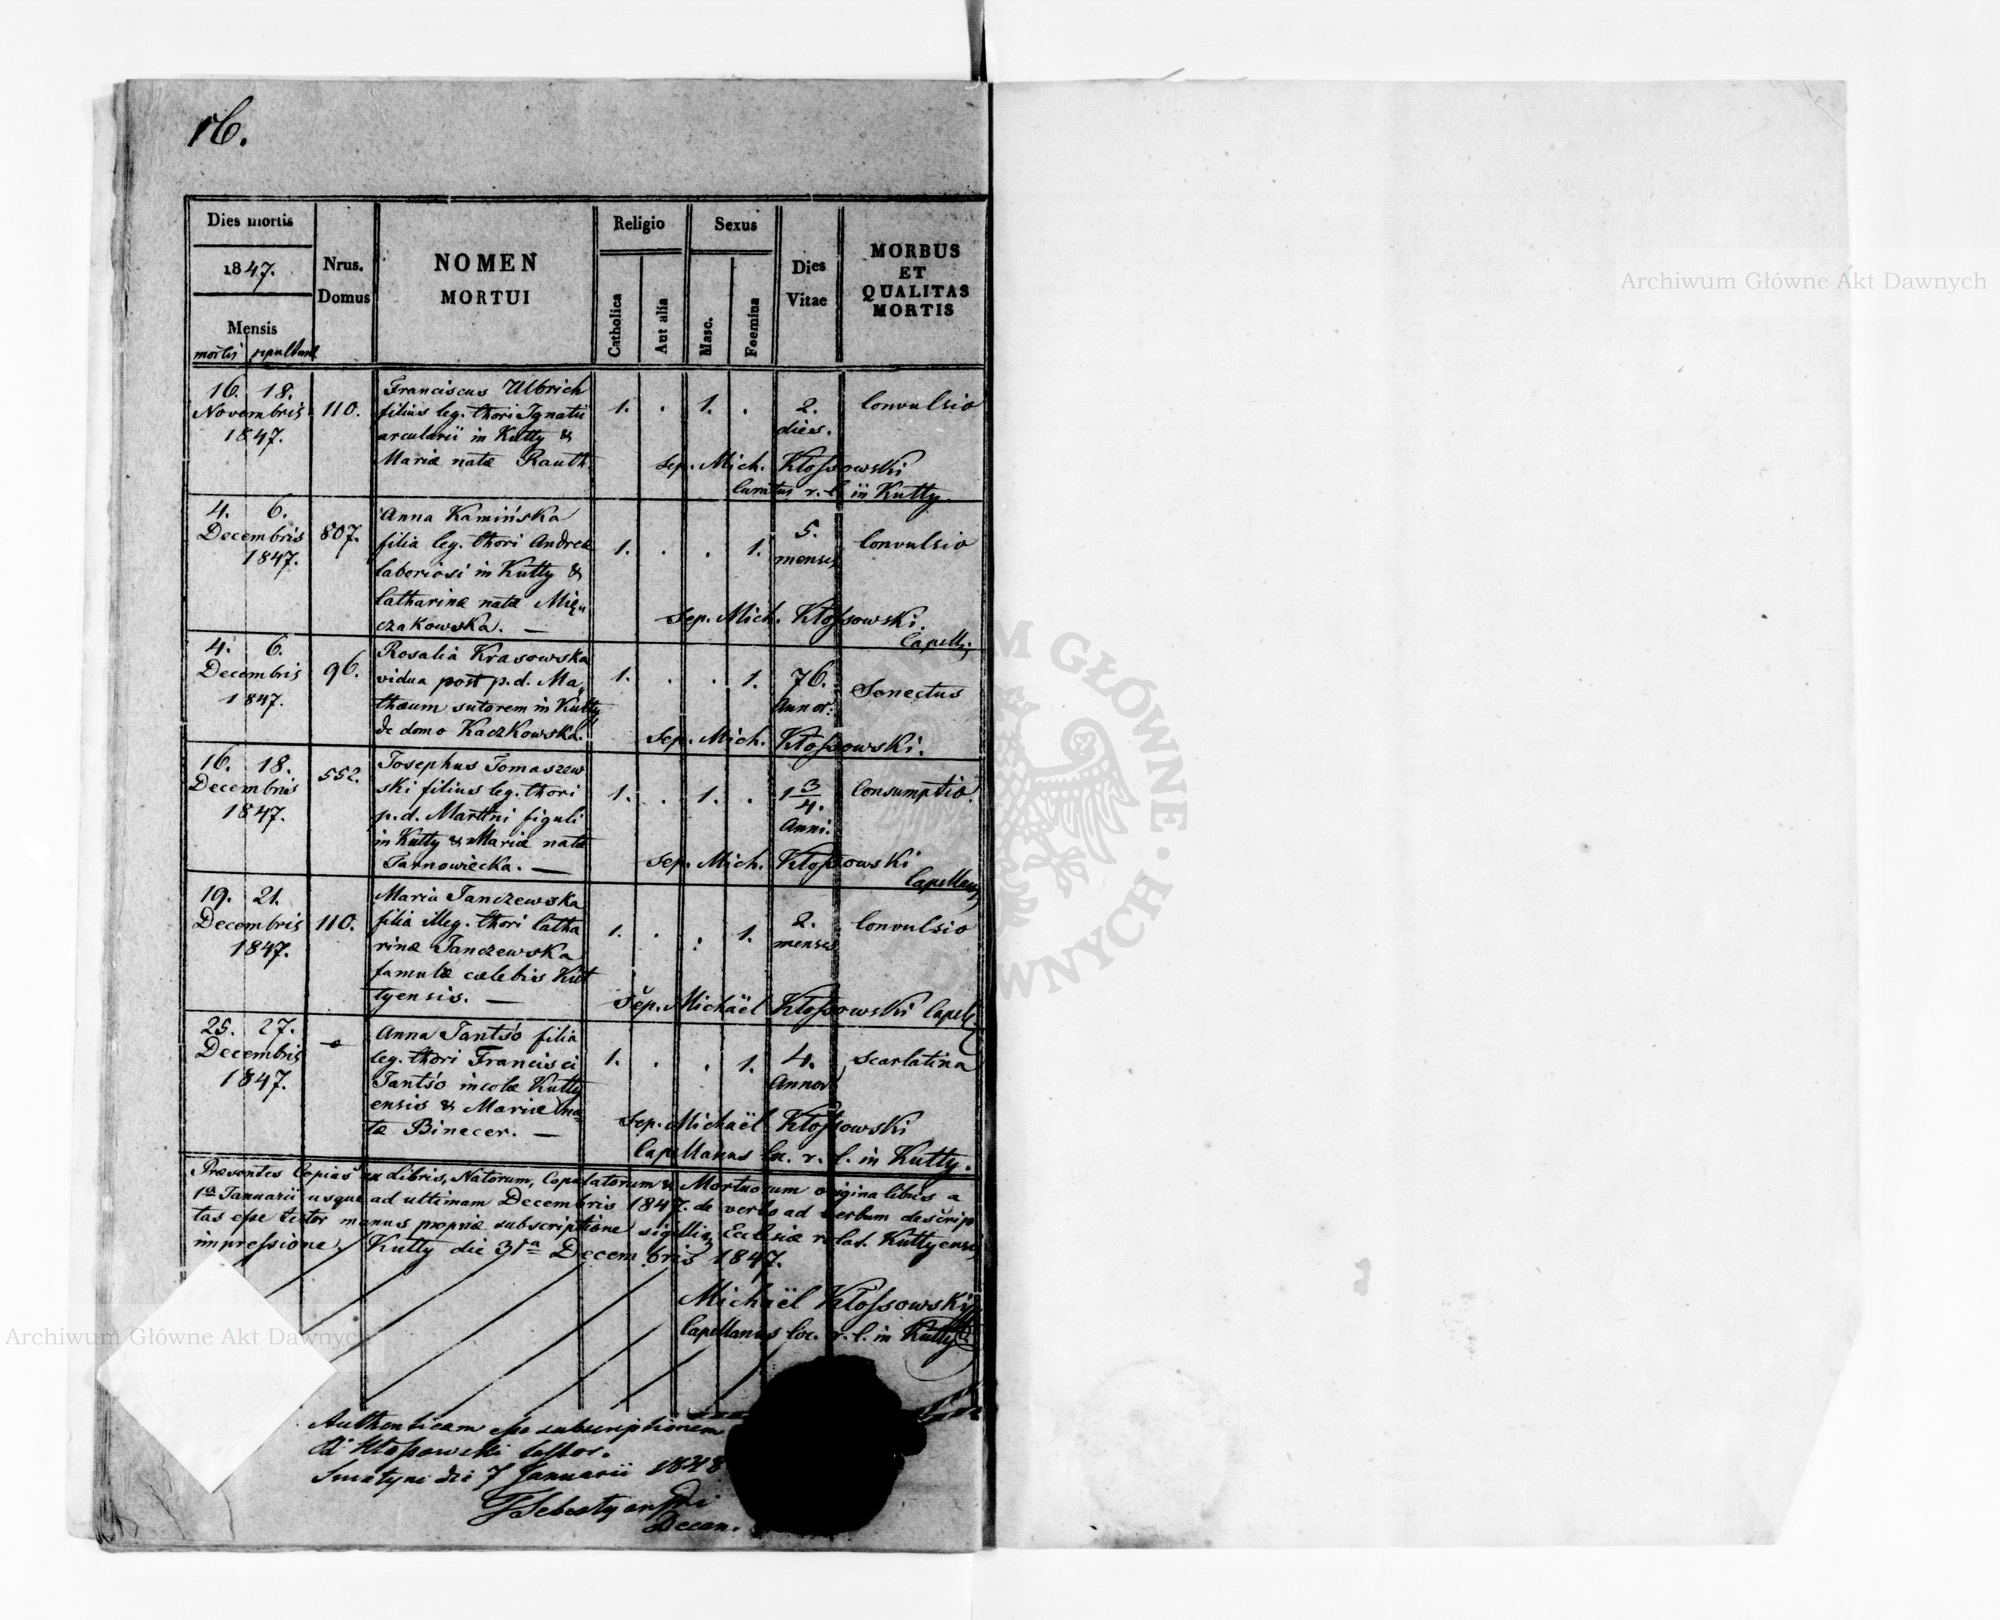 16.
Dies mortis
1847.
Mensis
mortis sepulturæ
Nrus.
Domus
NOMEN
MORTUI
Religio
Catholica
Aut alia
Sexus
Masc.
Foemina
Dies
Vitae
MORBUS
ET
QUALITAS
MORTIS
16. 18.
Novembris
1847.
110.
Franciscus Ulbrich
filius leg. thori Ignatii
arcularii in Kutty &
Mariæ natæ Rauth.
1. . 1. .
2.
dies.
Convulsio
Sep. Mich. Kłossowski
Curatus r. l. in Kutty.
4. 6.
Decembris
1847.
807.
Anna Kamińska
filia leg. thori Andreæ
laboriosi in Kutty &
Catharinæ natæ Mię„
czakowska. —
1. . . 1.
5.
menses
Convulsio
Sep. Mich. Kłossowski.
Capell.
4. 6.
Decembris
1847.
96.
Rosalia Krasowska
vidua post p. d. Ma„
thæum sutorem in Kutty
de domo Kaczkowska.
1. . . 1.
76.
Annor.
Senectus
Sep. Mich. Kłossowski.
16. 18.
Decembris
1847.
552.
Josephus Tomaszew
ski filius leg. thori
p. d. Martini figuli
in Kutty & Mariæ natæ
Tarnowiecka. —
1. . 1. .
1 3/4.
Anni.
Consumptio.
Sep. Mich. Kłossowski
Capellanus
19. 21.
Decembris
1847.
110.
Maria Janczewska
filia illeg. thori Catha
rinæ Janczewska
famulæ cælebis Kut
tyensis. —
1. . . 1.
2.
menses
Convulsio
Sep. Michaël Kłossowski Capell.
25. 27.
Decembris
1847.
Anna Jantsó filia
leg. thori Francisci
Jantsó incolæ Kutty
ensis & Mariæ na=
tæ Binecer. —
1. . . 1.
4.
Annor.
Scarlatina
Sep. Michaël Kłossowski
Capellanus Loc. r. l. in Kutty.
Præsentes Copias ex Libris, Natorum, Copulatorum & Mortuorum originalibus a
1a Januarii usque ad ultimam Decembris 1847. de verbo ad verbum descrip
tas esse testor manus propriæ subscriptione sigillig Ecclesiæ r. lat. Kuttyensis
impressione. Kutty die 31a Decembris 1847.
Michaël Kłossowski
Capellanus Loc. r. l. in Kutty
Authenticam esse subscriptionem
Kłossowski testor.
Sniatyni die 7 Januarii 1848
Decan.
Archiwum Główne Akt Dawnych
Archiwum Główne Akt Dawnych